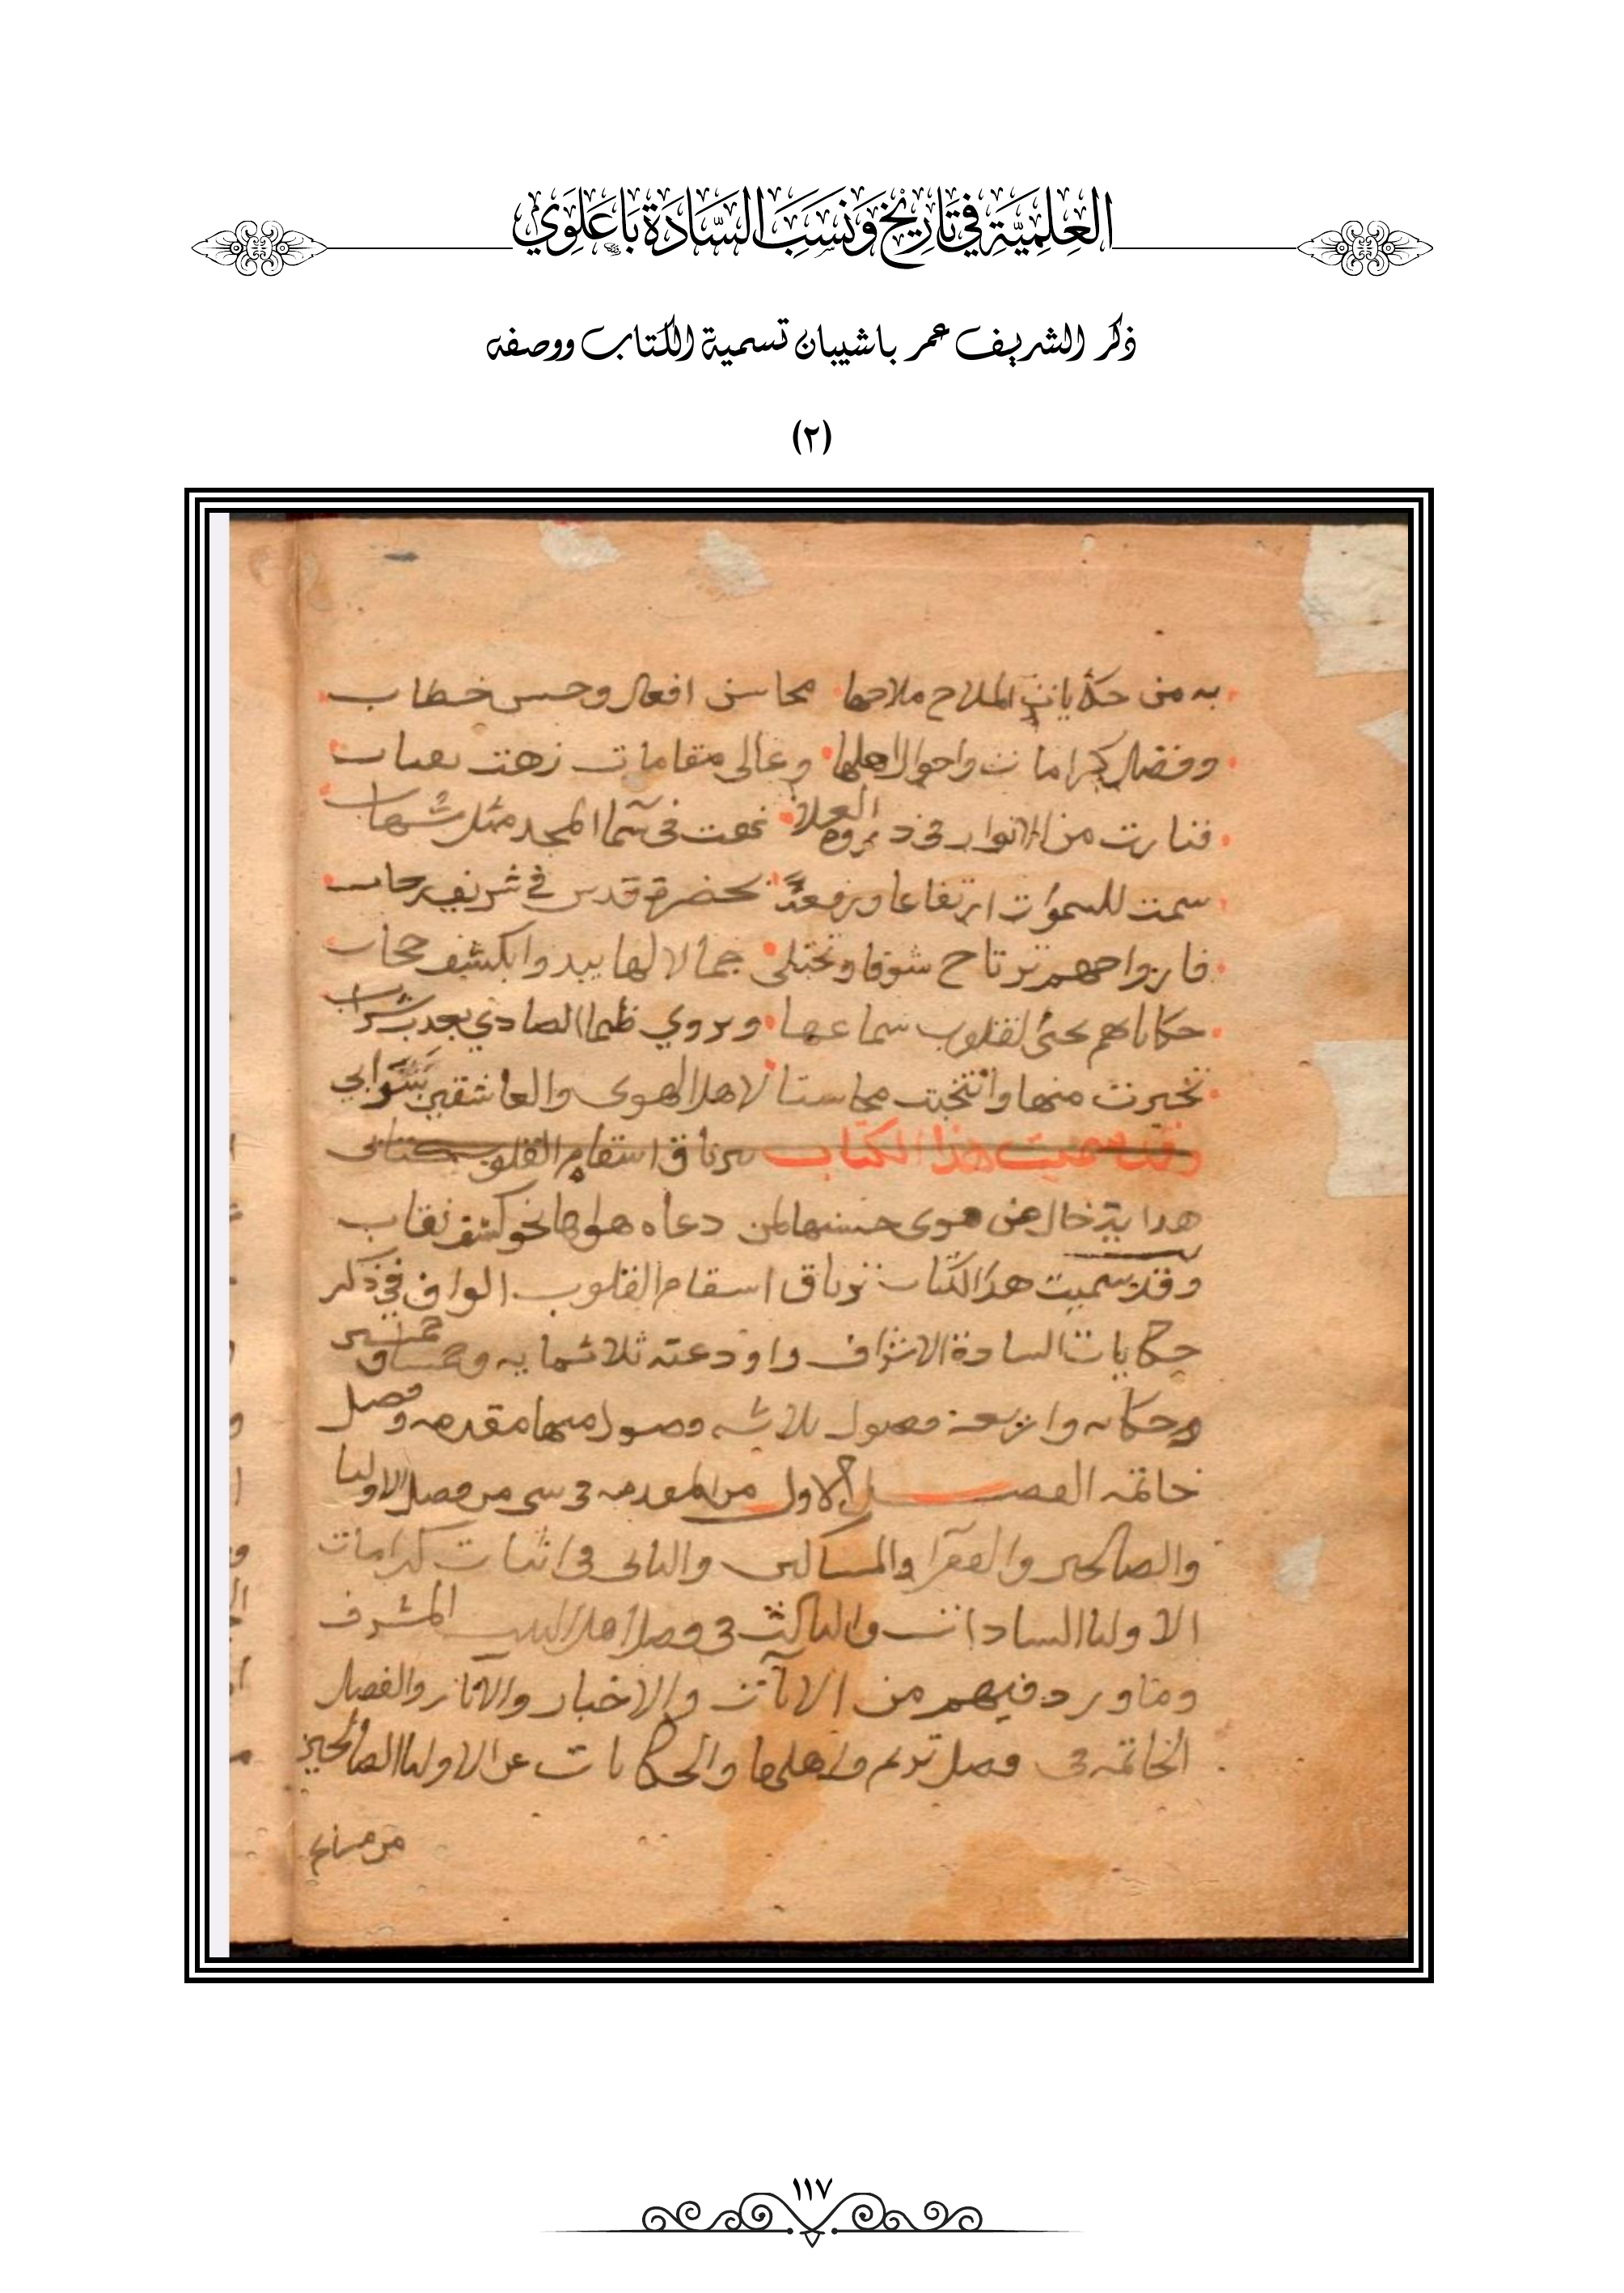 العِلمِيَّةِ فِي تَارِيْخِ وَنَسَبِ السَّادَةِ بَاعَلَوِي
ذكر الشريف عمر باشيبان تسمية الكتاب ووصفه
(٢)
به من حكايات الملاح ملاحها محاسن افعال وحسن خطاب
وفضل كرامات واحوال اهلها وعالى مقامات زهت
فنارت من الانوار فى ذروه العلا فى سما المجد مثل شهاب
سمت للسموات ارتفاعا ورفعة بحضرة قدس في شريف
فارواحهم ترتاح شوقا وتجتلى جمالا لها يبدوا بكشف حجاب
القلوب سماعها ويروي ظما الصادي بعذب شراب
تخيرت منها وانتخبت محاسنا لاهل الهوى والعاشقين
وقد سميت هذا الكتاب ترياق اسقام القلوب
هوى حسنها لمن دعاه هواها نحو كشف نقاب
وقد سميت هذا الكتاب ترياق اسقام القلوب الواف في ذكر
حكايات السادة الاشراف واودعته ثلاثمايه
وحكايه واربعة فصول ثلاثه فصول منها مقدمه وفصل
خاتمه الفصل الاول من المقدمه فى شى من فضل الاوليا
والصالحين والفقرا والمساكين والثانى فى اثبات كرامات
الاوليا السادات والثالث فى فضل اهل البيت المشرف
وما ورد فيهم من الايات والاخبار والاثار والفصل
الخاتمه فى فضل تريم واهلها والحكايات عن الاوليا الصالحين
١١٧